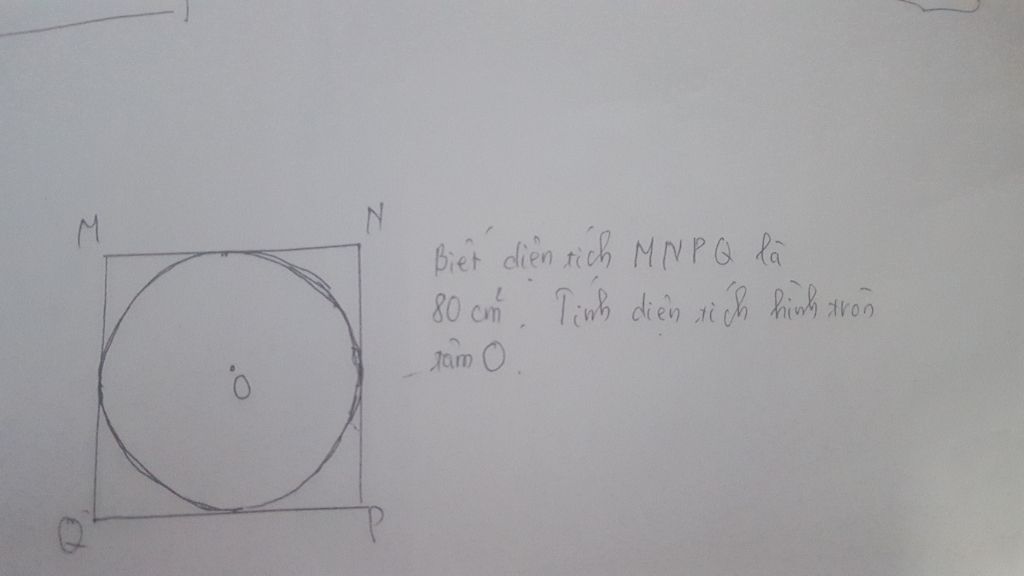 M
N
Biết diện tích MNPQ là
80 cm². Tính diện tích hình tròn
tâm O.
O
Q
P